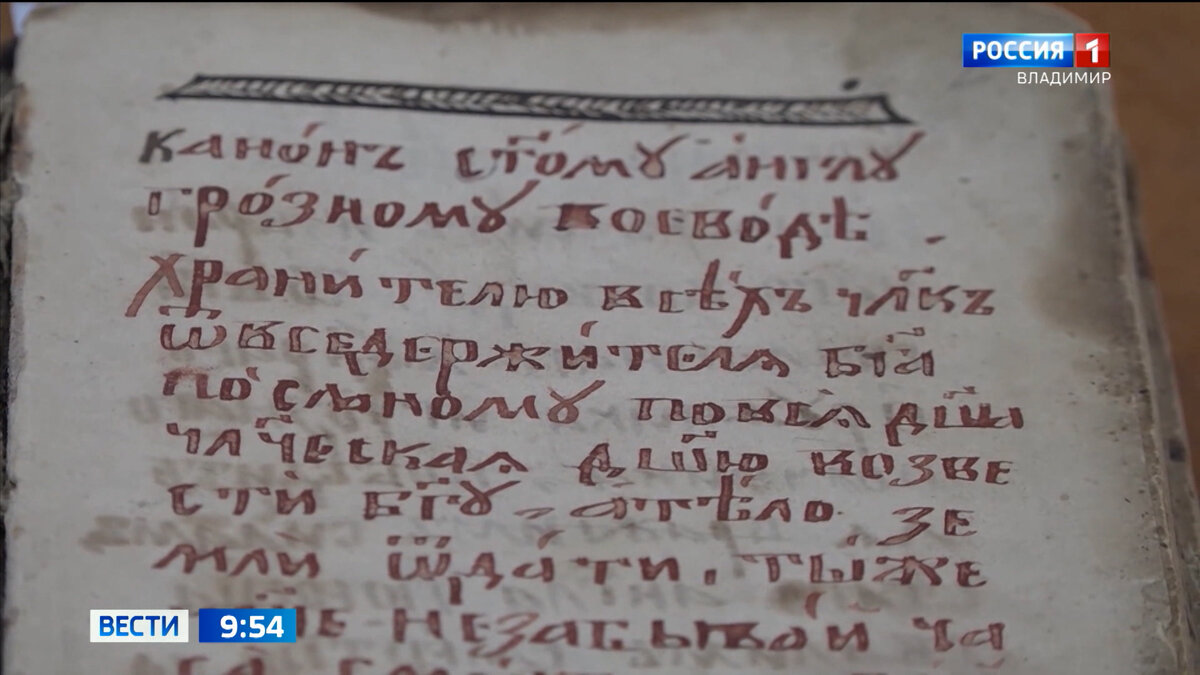 РОССИЯ 1
ВЛАДИМИР
кано́нъ ст҃о́му а҆́нг҃лу
гро́зному воево́дѣ
храни́телю всѣ́хъ чл҃к̾ъ
ѿ вседержи́теля бг҃а
по́сланому повся дш҃а
чл҃ч҃еская дш҃ю возве
сти́ бг҃у, а҆тѣ́ло зе
мли́ ѿда́ти, ты́же
не забыва́й ча
ВЕСТИ 9:54